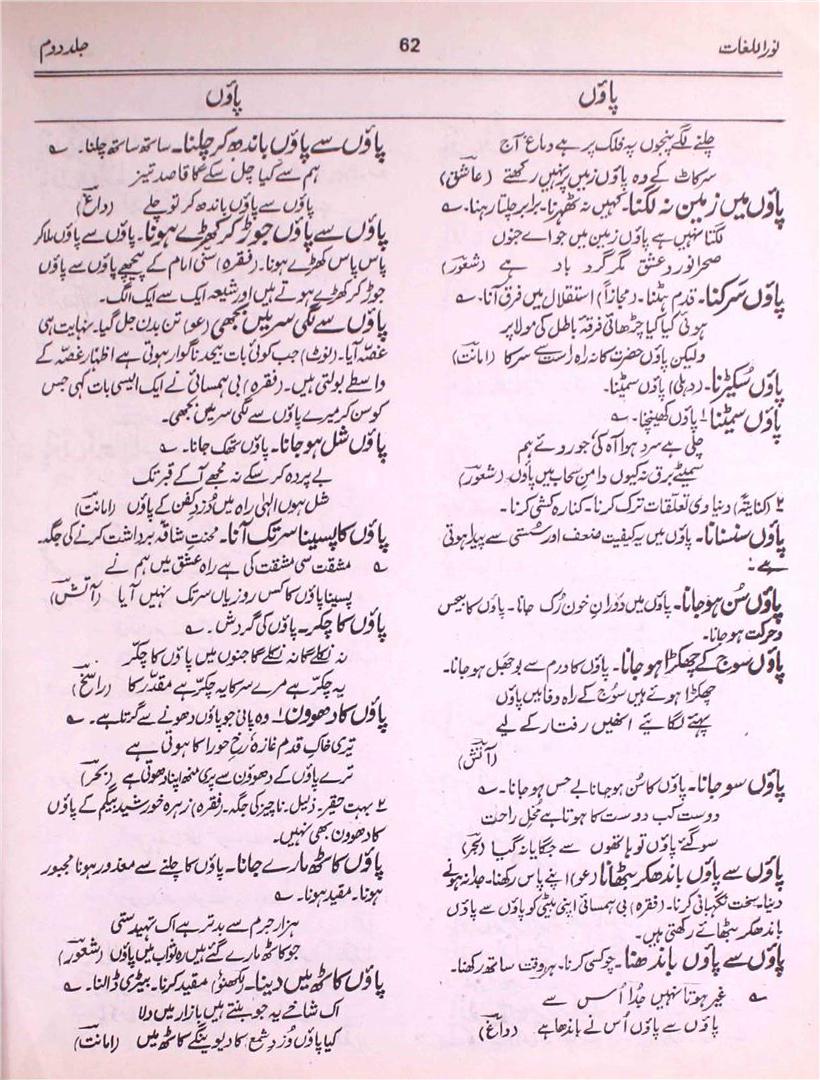 نوراللغات
62
جلد دوم
پاؤں
پاؤں
چلنے لگے پنجوں پہ فلک پر ہے دماغ آج
سرکاٹ کے وہ پاؤں زمیں پر نہیں رکھتے (عاشق)
پاؤں میں زمین نہ لگنا۔ کہیں نہ ٹھہرنا۔ برابر چلتا رہنا۔ ؎
لگتا نہیں ہے پاؤں زمین میں جو اے جنوں
صحرا نورد عشق مگر گرد باد ہے (شعور)
پاؤں سَرکنا۔ قدم ہٹنا۔ (مجازاً) استقلال میں فرق آنا۔ ؎
ہوئی کیا کیا چڑھائی فرقۂ باطل کی مولا پر
ولیکن پاؤں حضرت کا نہ راہ راست سے سرکا (امانت)
پاؤں سُکیڑنا۔ (دہلی) پاؤں سمیٹنا۔
پاؤں سمیٹنا ۱۔ پاؤں کھینچنا۔ ؎
چلی ہے سرد ہوا آہ کی جو روئے ہم
سمیٹے برق نہ کیوں دامن سحاب میں پاؤں (شعور)
۲ (کنایۃً) دنیاوی تعلقات ترک کرنا۔ کنارہ کشی کرنا۔
پاؤں سنسنانا۔ پاؤں میں یہ کیفیت ضعف اور سُستی سے پیدا ہوتی
ہے۔
پاؤں سُن ہوجانا۔ پاؤں میں دَورانِ خون رُک جانا۔ پاؤں کا بیحس
و حرکت ہوجانا۔
پاؤں سوج کے چھکڑا ہوجانا۔ پاؤں کا ورم سے بوجھل ہوجانا۔
چھکڑا ہوئے ہیں سُوج کے راہ وفا میں پاؤں
پہیے لگائیے انھیں رفتار کے لیے
(آتش)
پاؤں سوجانا۔ پاؤں کا سُن ہوجانا بے حس ہوجانا۔ ؎
دوست کب دوست کا ہوتا ہے مُخل راحت
سو گئے پاؤں تو ہاتھوں سے جگایا نہ گیا (بحر)
پاؤں سے پاؤں باندھکر بٹھانا (عو) اپنے پاس رکھنا۔ جدا نہ ہونے
دینا۔ سخت نگہبانی کرنا۔ (فقرہ) بی ہمسائی اپنی بیٹی کو پاؤں سے پاؤں
باندھکر بٹھائے رکھتی ہیں۔
پاؤں سے پاؤں باندھنا۔ چوکسی کرنا۔ ہر وقت ساتھ رکھنا۔
؎ غیر ہوتا نہیں جُدا اُس سے
پاؤں سے پاؤں اُس نے باندھا ہے (داغ)
پاؤں سے پاؤں باندھ کر چلنا۔ ساتھ ساتھ چلنا۔ ؎
ہم سے کیا چل سکے گا قاصد تیز
پاؤں سے پاؤں باندھ کر تو چلے (داغ)
پاؤں سے پاؤں جوڑ کر کھڑے ہونا۔ پاؤں سے پاؤں ملا کر
پاس پاس کھڑے ہونا۔ (فقرہ) سنّی امام کے پیچھے پاؤں سے پاؤں
جوڑ کر کھڑے ہوتے ہیں اور شیعہ ایک سے ایک الگ۔
پاؤں سے لگی سر میں بجھی (عو) تن بدن جل گیا۔ نہایت ہی
غصّہ آیا۔ (نوٹ) جب کوئی بات بیحد ناگوار ہوتی ہے اظہارِ غصّہ کے
واسطے بولتی ہیں۔ (فقرہ) بی ہمسائی نے ایک ایسی بات کہی جس
کو سن کر میرے پاؤں سے لگی سر میں بجھی۔
پاؤں شل ہوجانا۔ پاؤں تھک جانا۔ ؎
بے پردہ کر سکے نہ مجھے آکے قبر تک
شل ہوں الٰہی راہ میں دُزدِ کفن کے پاؤں (امانت)
پاؤں کا پسینا سر تک آنا۔ محنتِ شاقّہ برداشت کرنے کی جگہ۔
؎ مشقت سی مشقت کی ہے راہ عشق میں ہم نے
پسینا پاؤں کا کس روز یاں سر تک نہیں آیا (آتش)
پاؤں کا چکر۔ پاؤں کی گردش۔ ؎
نہ نکلے گا نہ نکلے گا جنوں میں پاؤں کا چکّر
یہ چکّر ہے مرے سر کا یہ چکّر ہے مقدّر کا (راسخ)
پاؤں کا دھوون ۱۔ وہ پانی جو پاؤں دھونے سے گرتا ہے۔ ؎
تیری خاکِ قدم غازۂ رخِ حورا کا ہوتی ہے
ترے پاؤں کے دھوؤن سے پری منھ اپنا دھوتی ہے (بحر)
۲ بہت حقیر۔ ذلیل۔ ناچیز کی جگہ۔ (فقرہ) زہرہ خورشید بیگم کے پاؤں
کا دھوون بھی نہیں۔
پاؤں کاٹھ مارے جانا۔ پاؤں کا چلنے سے معذور ہونا مجبور
ہونا۔ مقید ہونا۔ ؎
ہزار جرم سے بدتر ہے اک تہیدستی
جو کاٹھ مارے گئے ہیں رہ ثواب میں پاؤں (شعور)
پاؤں کاٹھ میں دینا۔ (لکھنؤ) مقید کرنا۔ بیڑی ڈالنا۔ ؎
اک شاخ یہ جو بنتے ہیں بازار میں دلا
کیا پاؤں دُزدِ شمع کا دیوینگے کاٹھ میں (امانت)